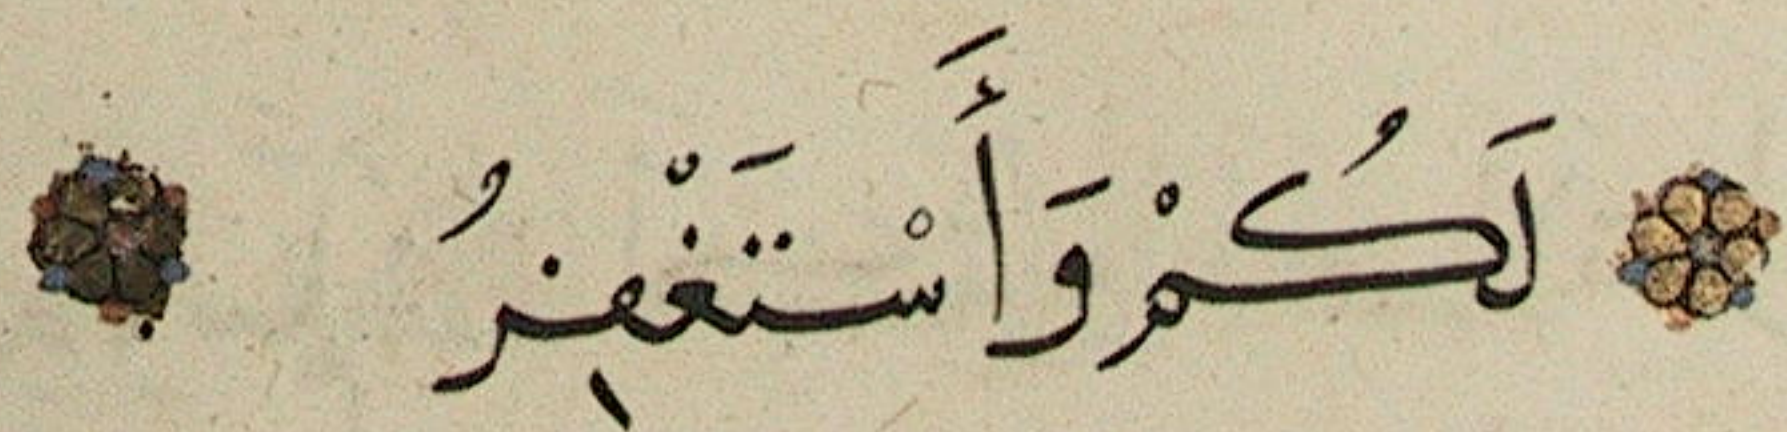 لَكُمْ وَأَسْتَغْفِرُ